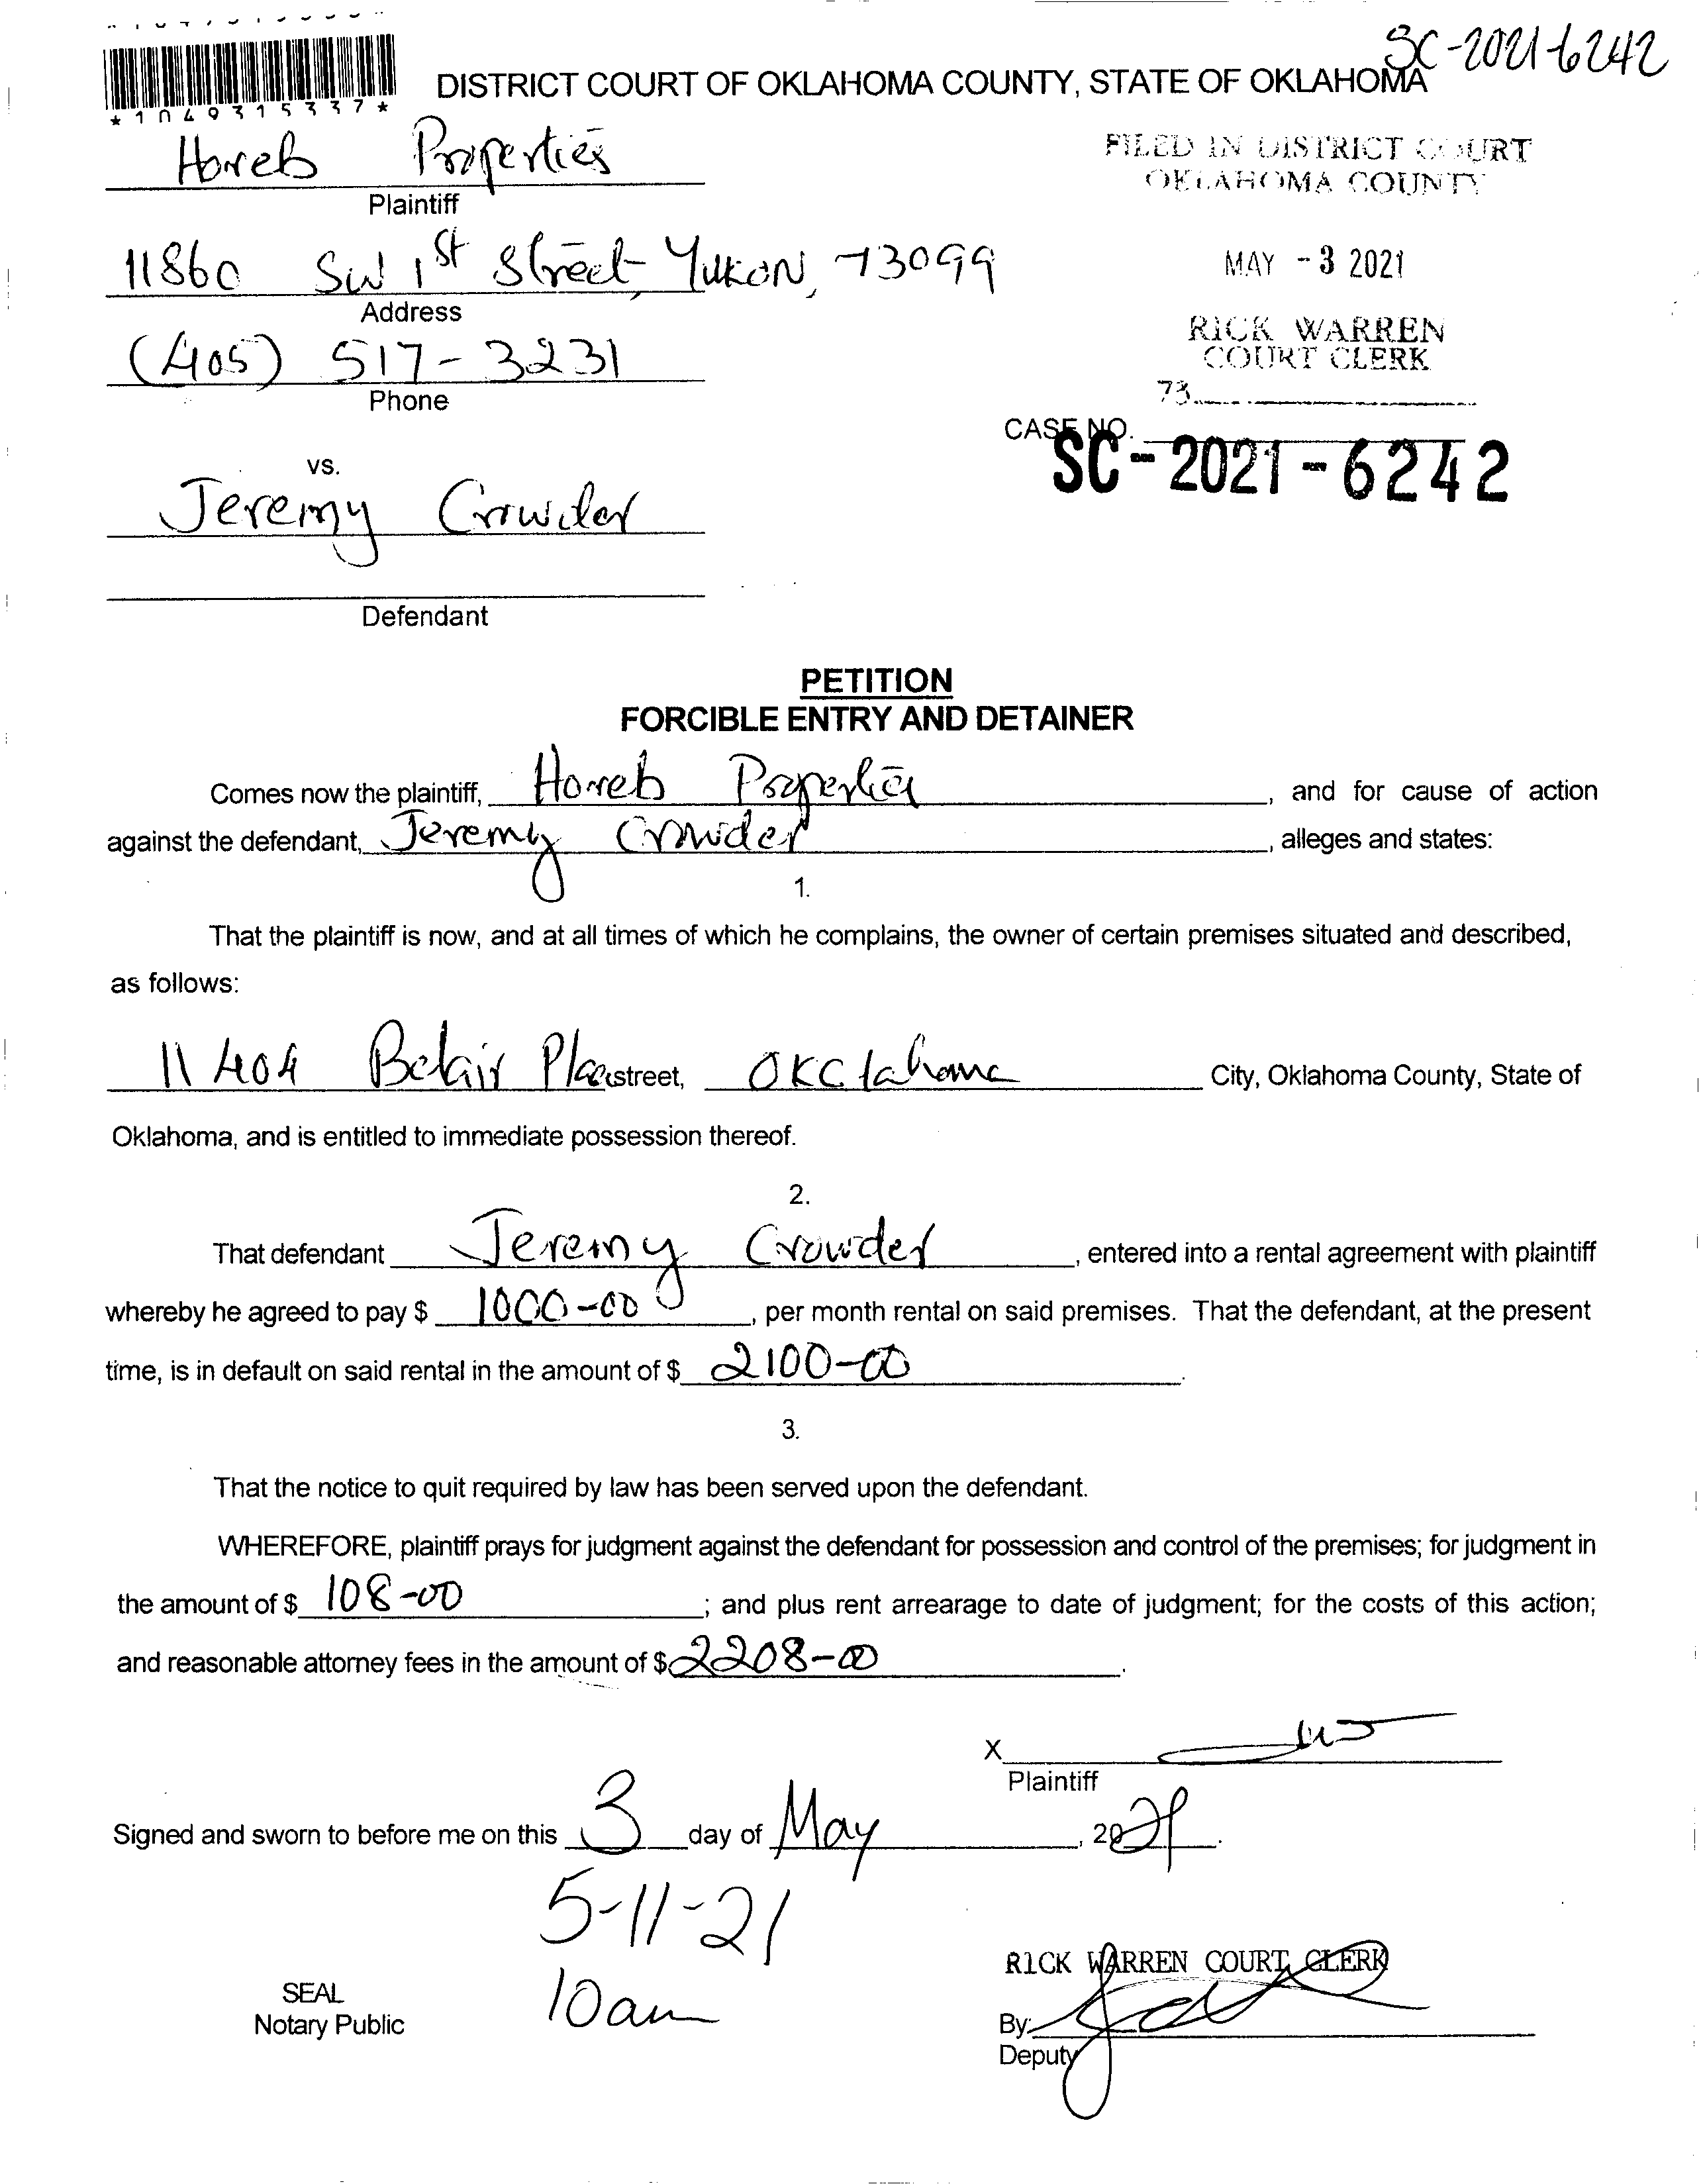 SC-2021-6242
*1049315337*
DISTRICT COURT OF OKLAHOMA COUNTY, STATE OF OKLAHOMA
Horeb Properties
Plaintiff
FILED IN DISTRICT COURT
OKLAHOMA COUNTY
11860 SW 1st Street, Yukon, 73099
Address
MAY - 3 2021
(405) 517-3231
Phone
RICK WARREN
COURT CLERK
73
CASE NO.
SC-2021-6242
vs.
Jeremy Crowder
Defendant
PETITION
FORCIBLE ENTRY AND DETAINER
Comes now the plaintiff, Horeb Properties, and for cause of action
against the defendant, Jeremy Crowder, alleges and states:
1.
That the plaintiff is now, and at all times of which he complains, the owner of certain premises situated and described,
as follows:
11404 Belair Place street, OKCtahoma City, Oklahoma County, State of
Oklahoma, and is entitled to immediate possession thereof.
2.
That defendant Jeremy Crowder, entered into a rental agreement with plaintiff
whereby he agreed to pay $ 1000-00, per month rental on said premises. That the defendant, at the present
time, is in default on said rental in the amount of $ 2100-00.
3.
That the notice to quit required by law has been served upon the defendant.
WHEREFORE, plaintiff prays for judgment against the defendant for possession and control of the premises; for judgment in
the amount of $ 108-00; and plus rent arrearage to date of judgment; for the costs of this action;
and reasonable attorney fees in the amount of $ 2208-00.
X
Plaintiff
Signed and sworn to before me on this 3 day of May, 2021.
5-11-21
10am
SEAL
Notary Public
RICK WARREN COURT CLERK
By:
Deputy